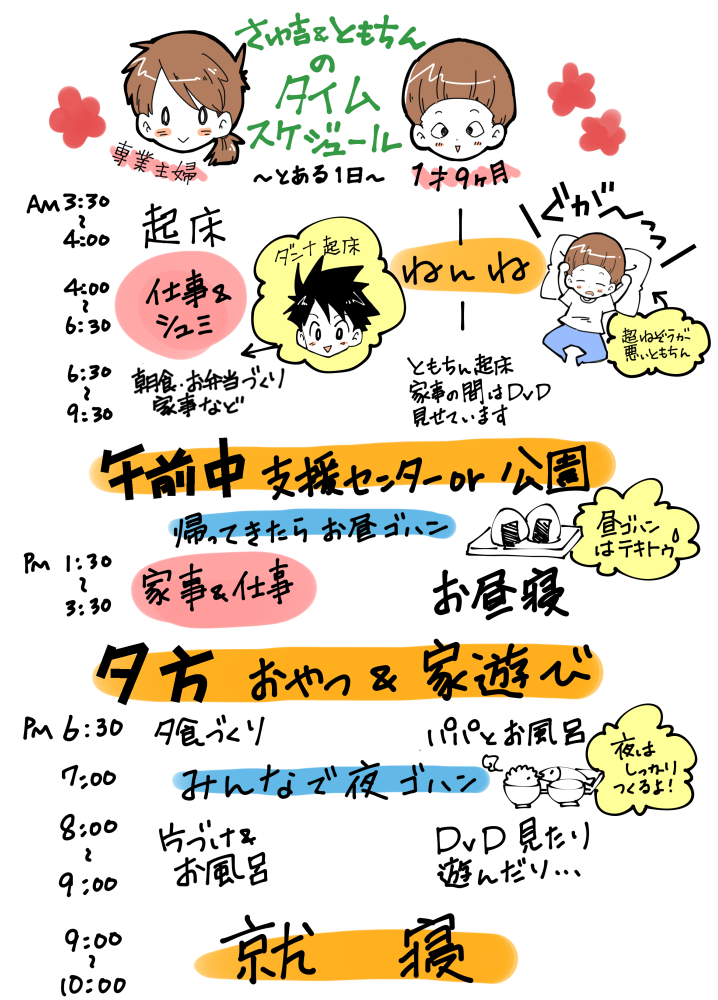 さゆ吉&ともちん
の
タイム
スケジュール
~とある1日~
専業主婦
1才9ヶ月
AM 3:30
~
4:00
起床
ねんね
ぐがーっっ
超ねぞうが
悪いともちん
4:00
~
6:30
仕事&
シュミ
ダンナ起床
6:30
~
9:30
朝食・お弁当づくり
家事など
ともちん起床
家事の間はDVD
見せています
午前中 支援センターor 公園
帰ってきたら お昼ゴハン
昼ゴハン
はテキトウ
PM 1:30
~
3:30
家事&仕事
お昼寝
夕方 おやつ & 家遊び
PM 6:30
夕食づくり
パパとお風呂
7:00
みんなで夜ゴハン
夜は
しっかり
つくるよ!
8:00
~
9:00
片づけ&
お風呂
DVD 見たり
遊んだり…
9:00
~
10:00
就 寝